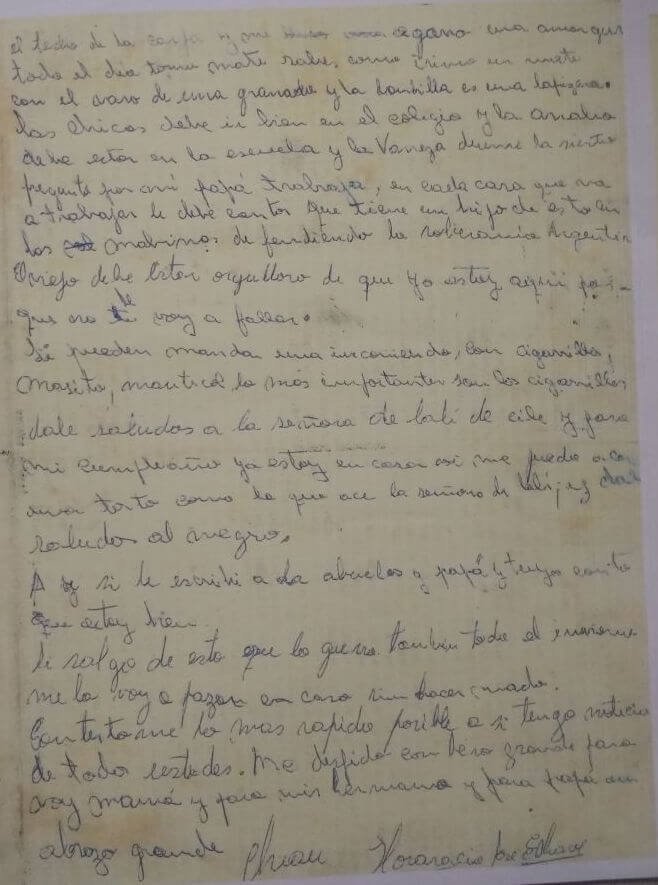 el techo de la carpa y me agano una amargura
todo el dia tomo mate sabe, como isimo un mate
con el vaso de una granada y la bombilla es una lapizera.
Las chicas debe ir bien en el colegio y la analia
debe estar en la escuela y la Vaneza duerme la siesta
pregunte por mi papá trabaja, en cada casa que va
a trabajar le debe contar que tiene un hijo de esto en
las malvinas defendiendo la soberania Argentin
O viejo debe estar orgulloso de que yo estoy aqui por-
que no le voy a fallar.
Si pueden manda una incomienda, con cigarrillo,
Masita, mantecol, lo mas importantes son los cigarrillos,
dale saludos a la señora de lali de ella y para
mi cumpleaño ya estoy en casa asi me puede acer
una torta como la que ace la señora de lali,
saludos al negro.
A y si le escribi a la abuela y papá y tuyo
que estoy bien.
Si salgo de esto que la guerra tambien todo el invierno
me la voy a pazar en casa sin hacer nada.
Contestame lo mas rapido posible a si tengo noticia
de todos ustedes. Me despido con beso grande para
voy mamá y para mis hermana y para papá un
abrazo grande Chuau Horaracio José